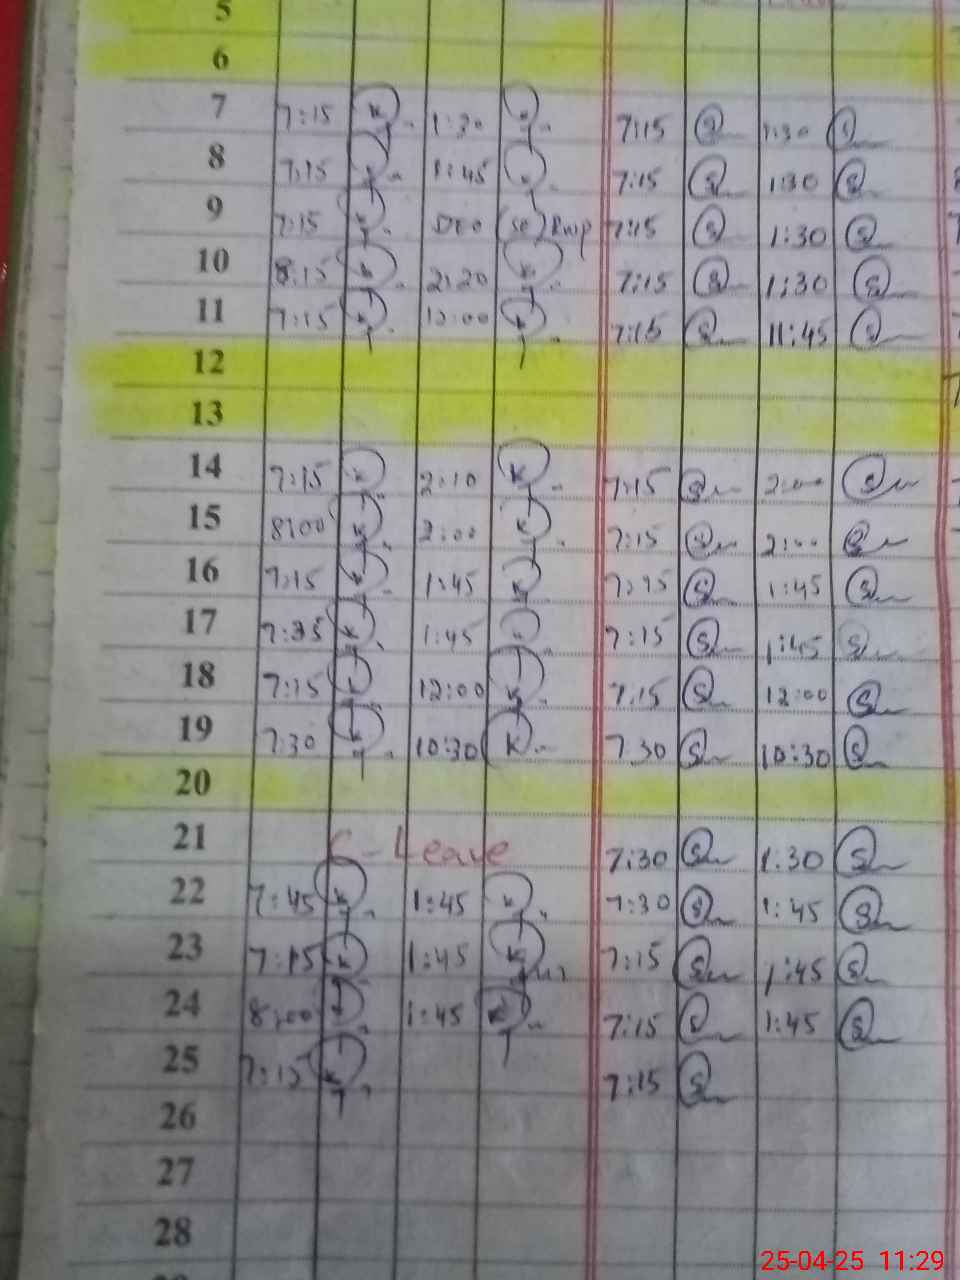 5
6
7 7:15 K 1:30 7:15 S 1:30 S
8 7:15 1:45 7:15 S 1:30 S
9 7:15 DEO (SE) Rwp 7:15 S 1:30 S
10 8:15 K 2:20 K 7:15 S 1:30 S
11 7:15 K 12:00 K 7:15 S 11:45 S
12
13
14 7:15 K 2:10 K 7:15 S 2:00 S
15 8:00 K 2:00 K 7:15 S 2:00 S
16 7:15 K 1:45 K 7:15 S 1:45 S
17 K 1:45 7:15 S 1:45 S
18 7:15 12:00 K 7:15 S 12:00 S
19 7:30 K 10:30 K 7:30 S 10:30 S
20
21 C-Leave 7:30 S 1:30 S
22 7:45 K 1:45 K 7:30 S 1:45 S
23 7:15 K 1:45 K 7:15 S 1:45 S
24 8:00 1:45 K 7:15 S 1:45 S
25 7:15 K 7:15 S
26
27
28
25-04-25 11:29